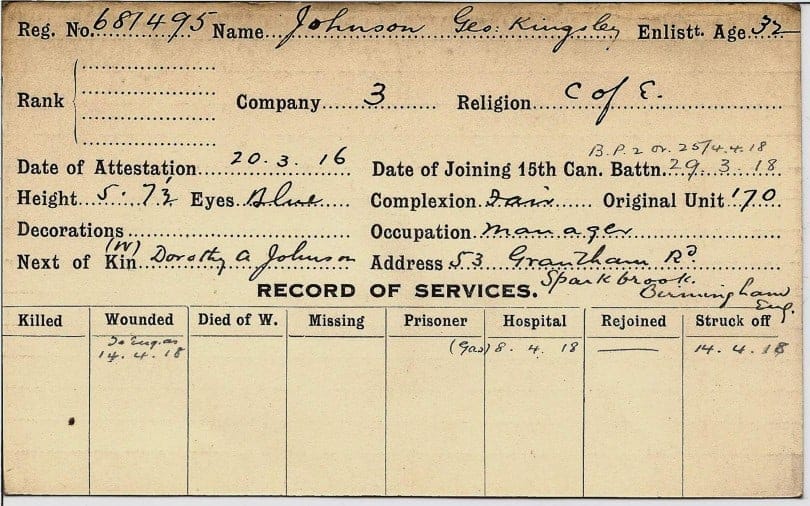 Reg. No. 681495 Name Johnson Geo: Kingsley Enlistt. Age 32
Rank Company 3 Religion C of E.
B.P. 2 Or. 25/4.4.18
Date of Attestation 20.3.16 Date of Joining 15th Can. Battn. 29.3.18
Height 5.7½ Eyes Blue Complexion Fair Original Unit '70
Decorations Occupation Manager
Next of Kin (W) Dorothy A Johnson Address 53 Grantham Rd.
Sparkbrook.
Birmingham
Eng.
RECORD OF SERVICES.
Killed Wounded Died of W. Missing Prisoner Hospital Rejoined Struck off
To Eng. as
14.4.18 (Gas) 8.4.18 14.4.18